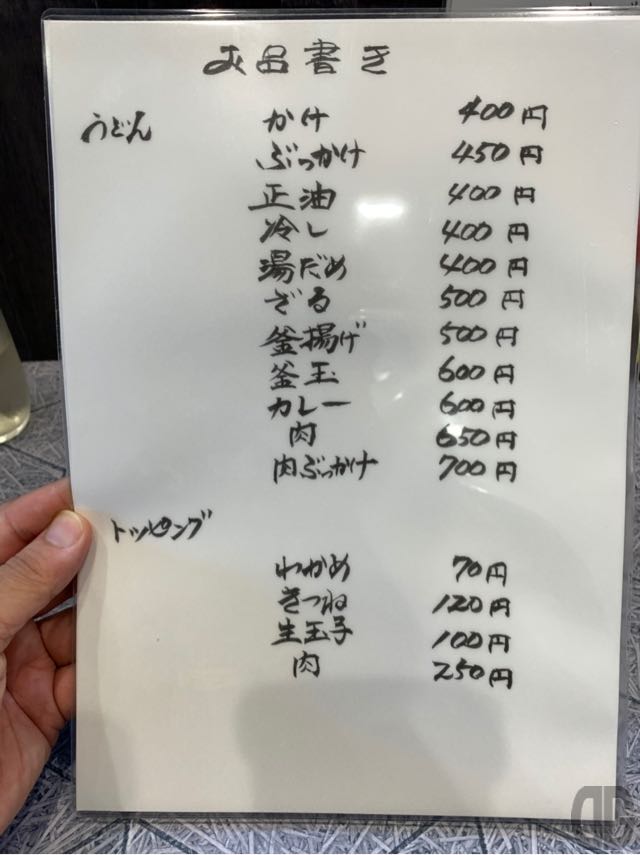 お品書き
うどん かけ 400円
ぶっかけ 450円
正油 400円
冷し 400円
湯だめ 400円
ざる 500円
釜揚げ 500円
釜玉 600円
カレー 600円
肉 650円
肉ぶっかけ 700円
トッピング
わかめ 70円
きつね 120円
生玉子 100円
肉 250円